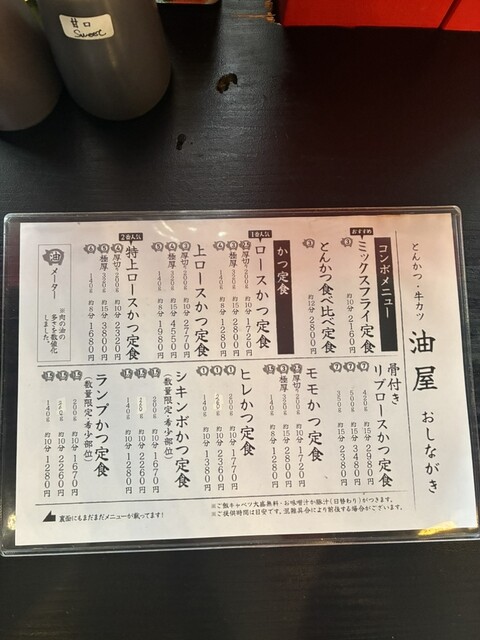 甘口
Sweet
とんかつ・牛カツ
油屋
おしながき
コンボメニュー
おすすめ
ミックスフライ定食
約10分 2160円
とんかつ食べ比べ定食
約12分 2800円
かつ定食
1番人気
ロースかつ定食
厚切 200g 約10分 1720円
極厚 320g 約15分 2800円
140g 約8分 1280円
上ロースかつ定食
厚切 200g 約10分 2770円
極厚 320g 約15分 4550円
140g 約8分 1980円
2番人気
特上ロースかつ定食
厚切 200g 約10分 2320円
極厚 320g 約15分 3800円
140g 約8分 1680円
油メーター
※肉の油の
多さを数値化
しました。
骨付き
リブロースかつ定食
420g 約15分 2980円
500g 約15分 3480円
350g 約15分 2380円
モモかつ定食
厚切 200g 約10分 1720円
極厚 320g 約15分 2800円
140g 約8分 1280円
ヒレかつ定食
200g 約10分 1770円
260g 約10分 2360円
140g 約10分 1380円
シキンボかつ定食
(数量限定・希少部位)
200g 約10分 1670円
260g 約10分 2260円
140g 約10分 1280円
ランプかつ定食
(数量限定・希少部位)
200g 約10分 1670円
260g 約10分 2260円
140g 約10分 1280円
※ご飯キャベツ大盛無料・お味噌汁か豚汁(日替わり)がつきます。
※ご提供時間は目安です。混雑具合により前後する場合がございます。
裏面にもまだまだメニューが載ってます!